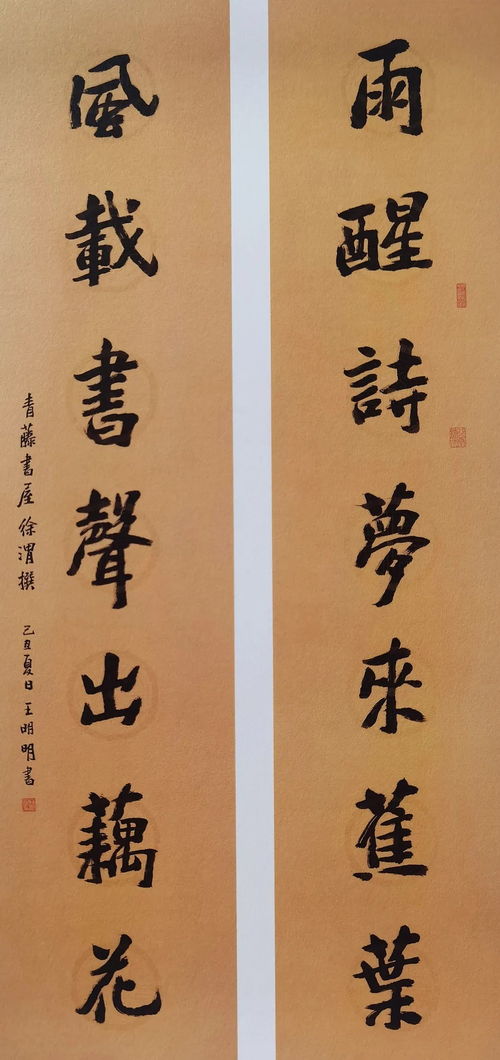 雨醒詩夢來蕉葉
風載書聲出藕花
青藤書屋徐渭撰
己丑夏日王明明書